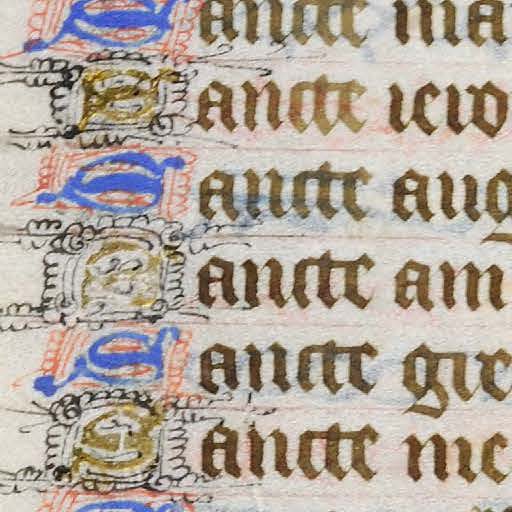 Sancte ma
Sancte iero
Sancte aug
Sancte am
Sancte gre
Sancte nic